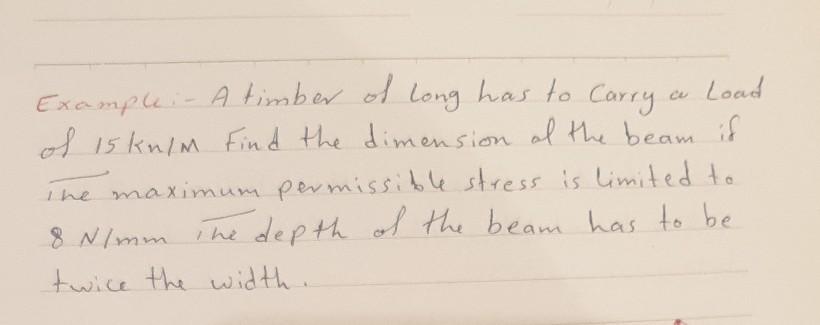 Example:- A timber of long has to Carry a Load
of 15 kn/M Find the dimension of the beam if
The maximum permissible stress is limited to
8 N/mm The depth of the beam has to be
twice the width.